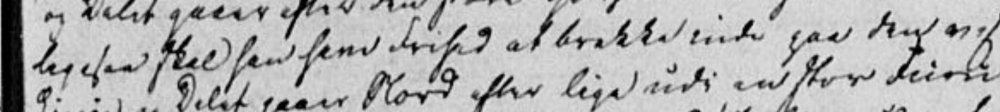 og Delet gaaer efter den
ligesaa skal han have Frihed at brække inde paa den
Delet gaaer Nord efter lige udi en stor Furu